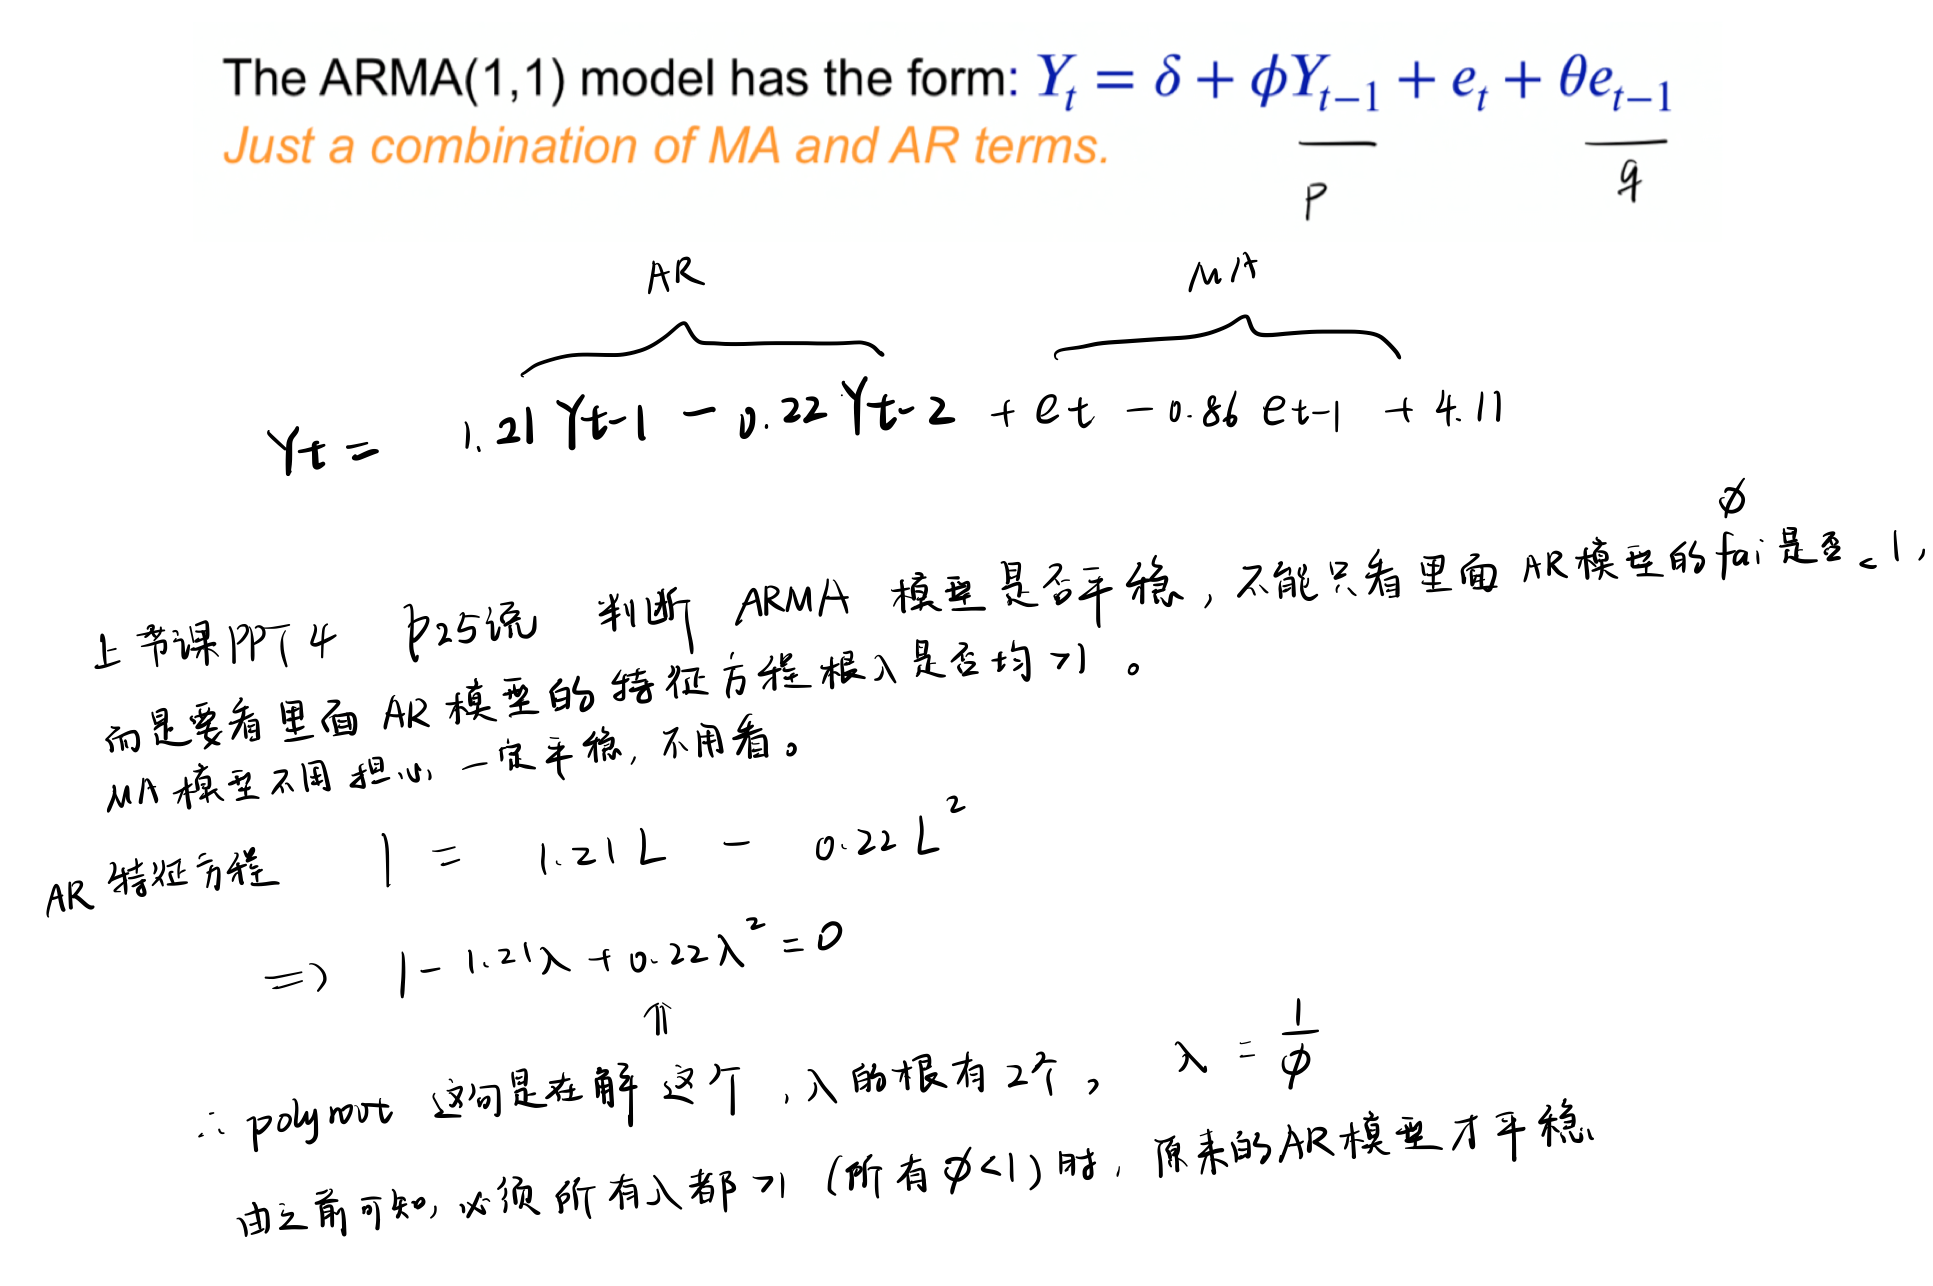 The ARMA(1,1) model has the form: Yₜ = δ + ϕYₜ₋₁ + eₜ + θeₜ₋₁
Just a combination of MA and AR terms.
p q
AR MA
Yt = 1.21 Yt-1 - 0.22 Yt-2 + et - 0.86 et-1 + 4.11
ϕ
上节课PPT 4 P25说 判断 ARMA 模型是否平稳，不能只看里面 AR模型的fai是否<1，
而是要看里面 AR模型的特征方程根λ是否均>1。
MA模型不用担心，一定平稳，不用看。
AR特征方程 1 = 1.21L - 0.22L²
=> 1 - 1.21λ + 0.22λ² = 0
⇑
∴ polyroot 这句是在解这个，λ的根有2个， λ = 1/ϕ
由之前可知，必须所有λ都>1（所有ϕ<1）时，原来的AR模型才平稳。